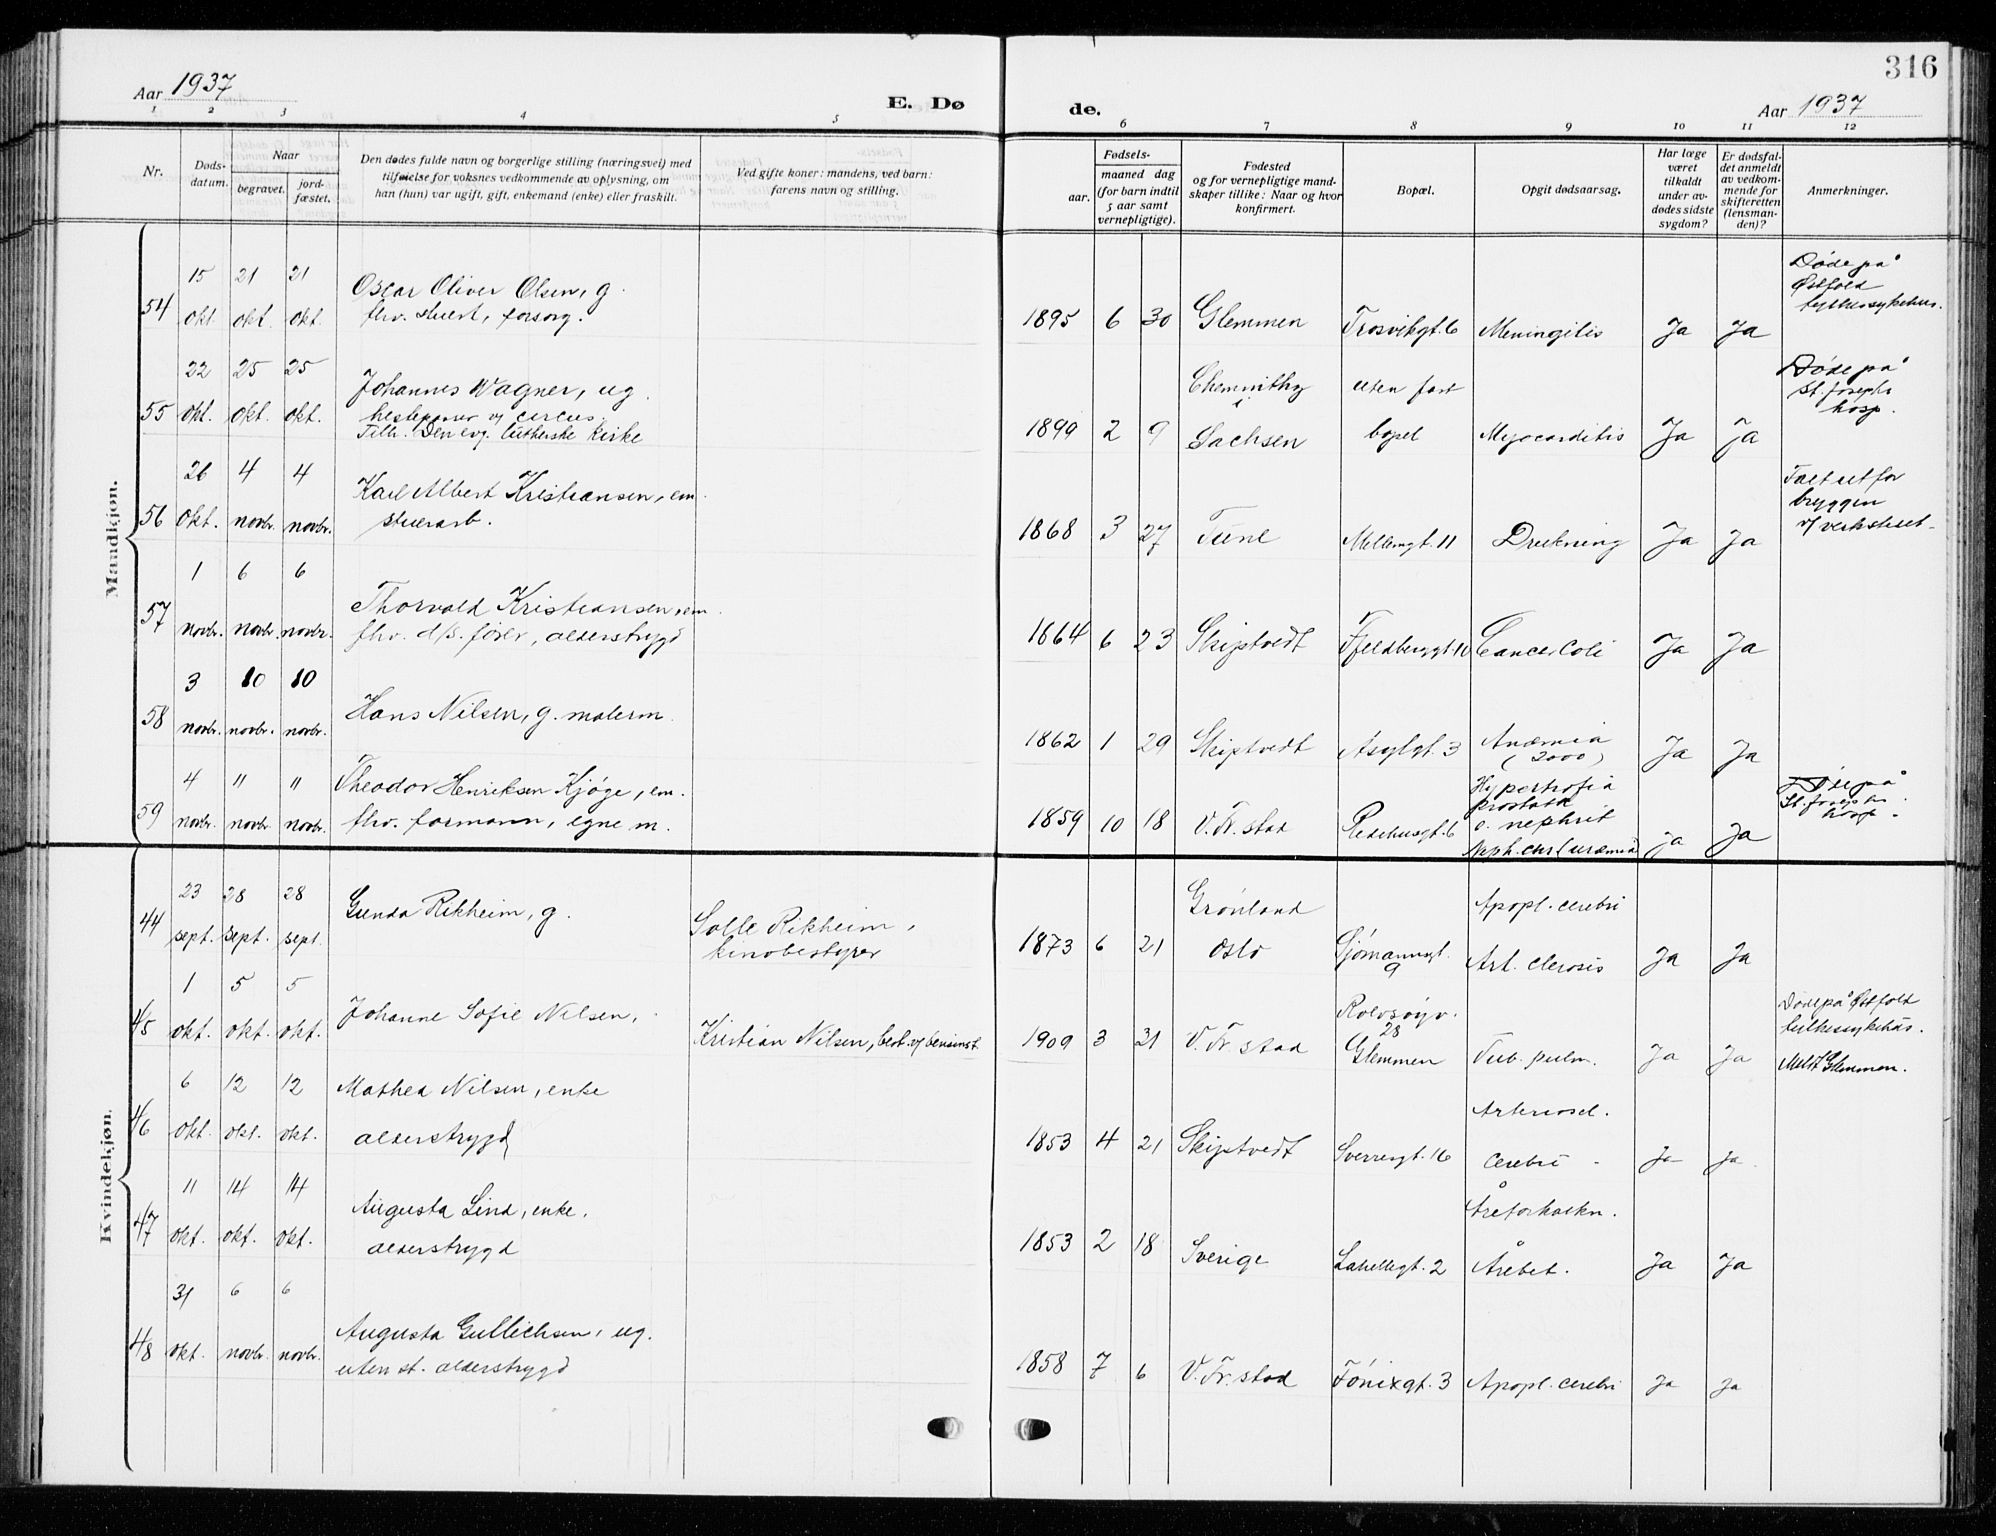 316
Aar 1937
E. Dø
de.
Aar 1937
1 2 3 4 5 6 7 8 9 10 11 12
Nr.
Døds-
datum.
Naar
begravet.
jord-
fæstet.
Den dødes fulde navn og borgerlige stilling (næringsvei) med
tilføielse for voksnes vedkommende av oplysning, om
han (hun) var ugift, gift, enkemand (enke) eller fraskilt.
Ved gifte koner: mandens, ved barn:
farens navn og stilling.
Fødsels-
aar.
maaned dag
(for barn indtil
5 aar samt
vernepligtige).
Fødested
og for vernepligtige mand-
skaper tillike: Naar og hvor
konfirmert.
Bopæl.
Opgit dødsaarsag.
Har læge
været
tilkaldt
under av-
dødes sidste
sygdom?
Er dødsfal-
det anmeldt
av vedkom-
mende for
skifteretten
(lensman-
den)?
Anmerkninger.
Mandkjøn.
54
15 okt.
21 okt.
21 okt.
Oscar Oliver Olsen, g.
fhv. stuert, forsorg.
1895 6 30
Glemmen
Trosvikgt. 6
Meningitis
Ja
Ja
Døde på
Østfold
tythussykehus.
55
22 okt.
25 okt.
25 okt.
Johannes Wagner, ug.
hestepasser v/ circus.
Tilh. Den evg. lutherske kirke
1899 2 9
Chemnitz
i
Sachsen
uten fast
bopel
Myocarditis
Ja
Ja
Døde på
St. Josephs
hosp.
56
26 okt.
4 novbr.
4 novbr.
Karl Albert Kristiansen, em.
stuerarb.
1868 3 27
Tune
Mellemgt. 11
Drukning
Ja
Ja
Falt ut for
bryggen
v/ verkstedet
57
1 novbr.
6 novbr.
6 novbr.
Thorvald Kristiansen, em.
fhv. d/s. fører, alderstrygd
1864 6 23
Skiptvedt
Fjeldberggt. 10
Cancer Coli
Ja
Ja
58
3 novbr.
10 novbr.
10 novbr.
Hans Nilsen, g. malerm.
1862 1 29
Skiptvedt
Asylgt. 3
Anæmia
Ja
Ja
59
4 novbr.
11 novbr.
11 novbr.
Theodor Henriksen Kjøge, em.
fhv. formann, egne m.
1859 10 18
V. Fr. stad
Rådhusgt. 6
Hypertrofia
prostata
c. nephrit
Neph. chr. (uræmia)
Ja
Ja
Døde på
St. Josephs
hosp.
Kvindekjøn.
44
23 sept.
28 sept.
28 sept.
Gunda Rikheim, g.
Salle Rikheim,
kinobestyrer
1873 6 21
Grønland
Oslo
Sjømannsgt.
9
Apopl. cerebri
Art. clerosis
Ja
Ja
45
1 okt.
5 okt.
5 okt.
Johanne Sofie Nilsen,
Kristian Nilsen, best. v/ bensinst.
1909 3 21
V. Fr. stad
Rolvsøyv.
28
Glemmen
Tub. pulm.
Ja
Ja
Døde på Østfold
tuberkssykehus.
Meldt Glemmen.
46
6 okt.
12 okt.
12 okt.
Mathea Nilsen, enke
alderstrygd
1853 4 21
Skiptvedt
Sverresgt. 16
Arterioscl.
cerebri
Ja
Ja
47
11 okt.
14 okt.
14 okt.
Augusta Lind, enke.
alderstrygd
1853 2 18
Sverige
Lahellegt. 2
Åreforkalkn.
Årebet.
Ja
Ja
48
31 okt.
6 novbr.
6 novbr.
Augusta Gullichsen, ug.
uten st. alderstrygd
1858 7 6
V. Fr. stad
Fønixgt. 3
Apopl. cerebri
Ja
Ja